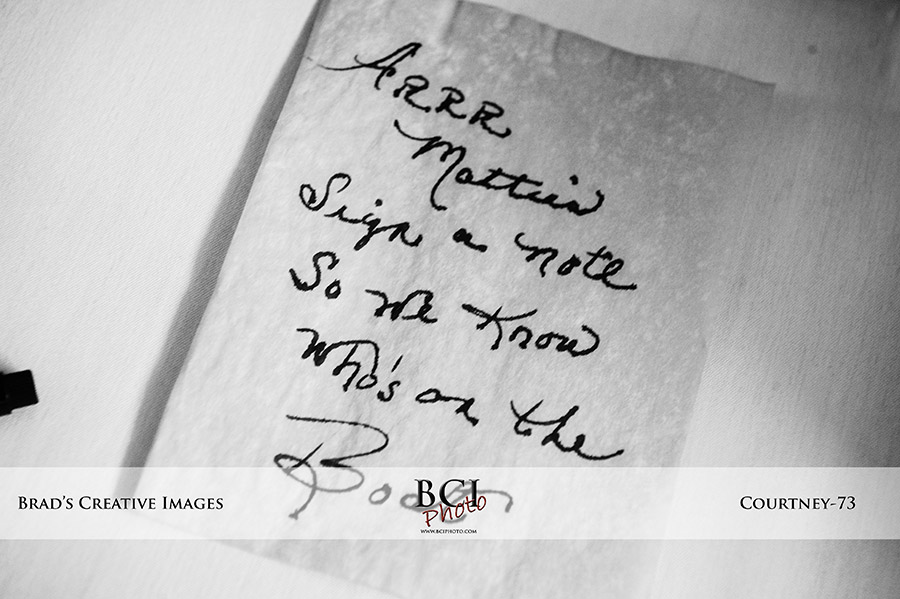 ARRR
Matties
Sign a note
So we know
who's on the
Boat
BRAD'S CREATIVE IMAGES
BCI
photo
WWW.BCIPHOTO.COM
COURTNEY-73